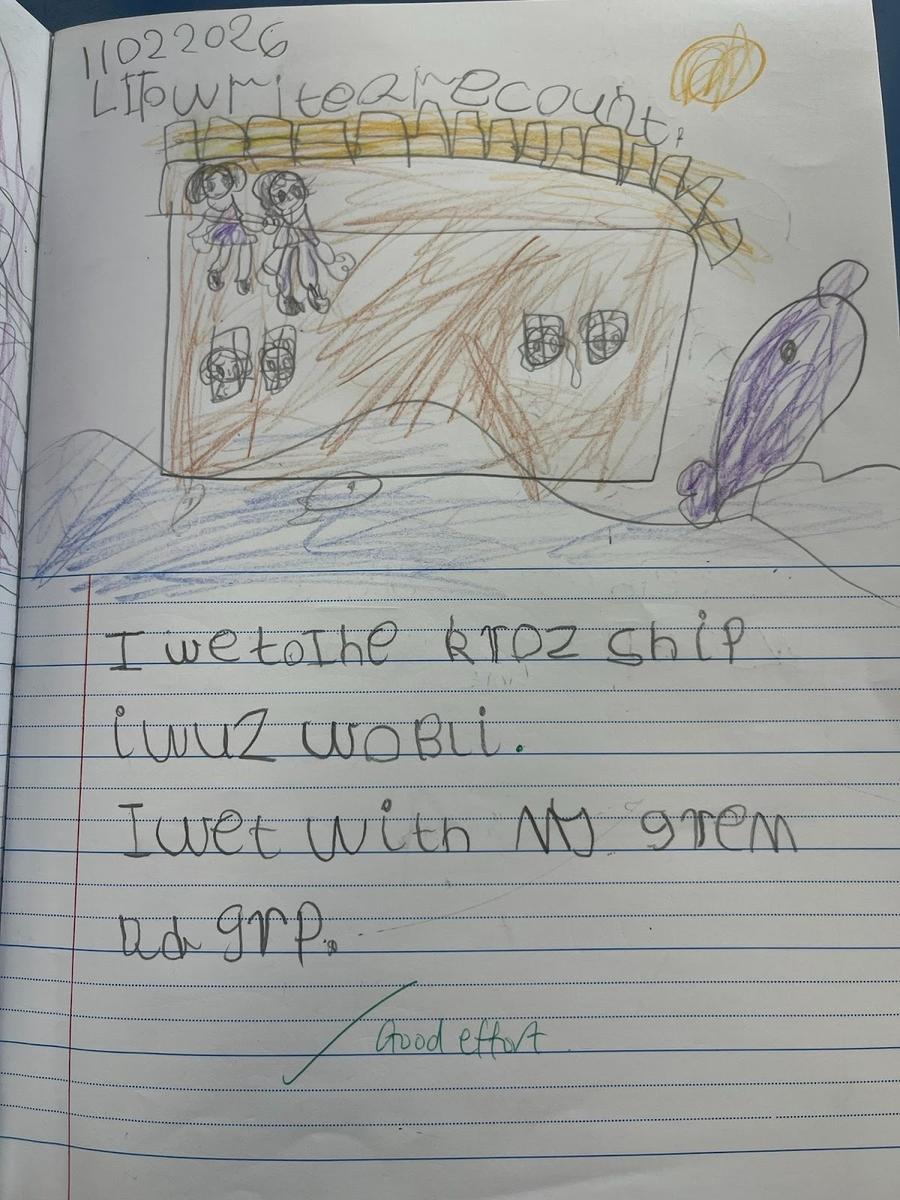 11022026
LI To write a recount.
I we to The kroz ship
i wuz woBli.
I wet with My grem
ad grp.
Good effort